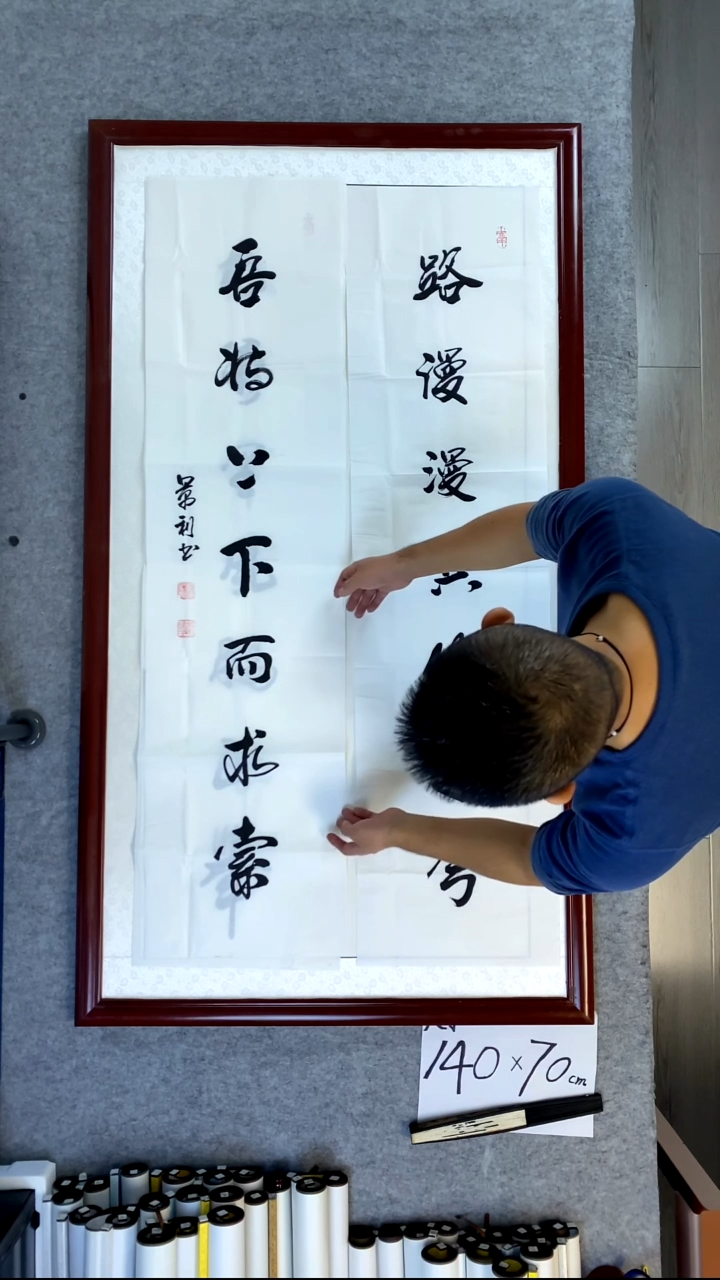 路漫漫兮
吾将上下而求索
利书
140×70cm